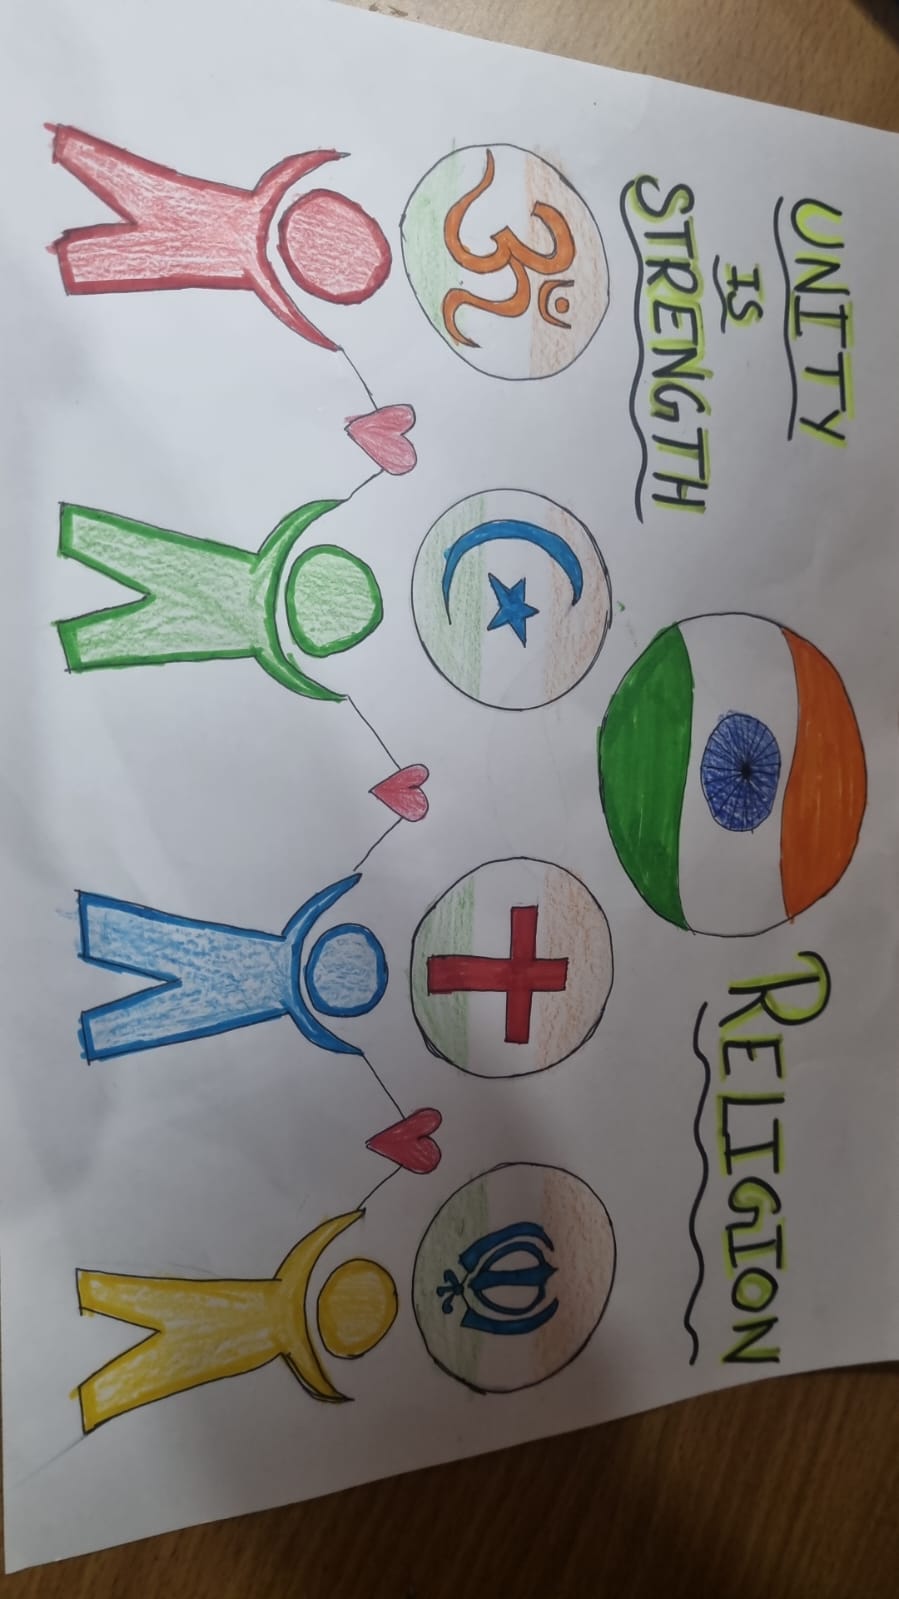 UNITY
IS
STRENGTH
RELIGION
ॐ